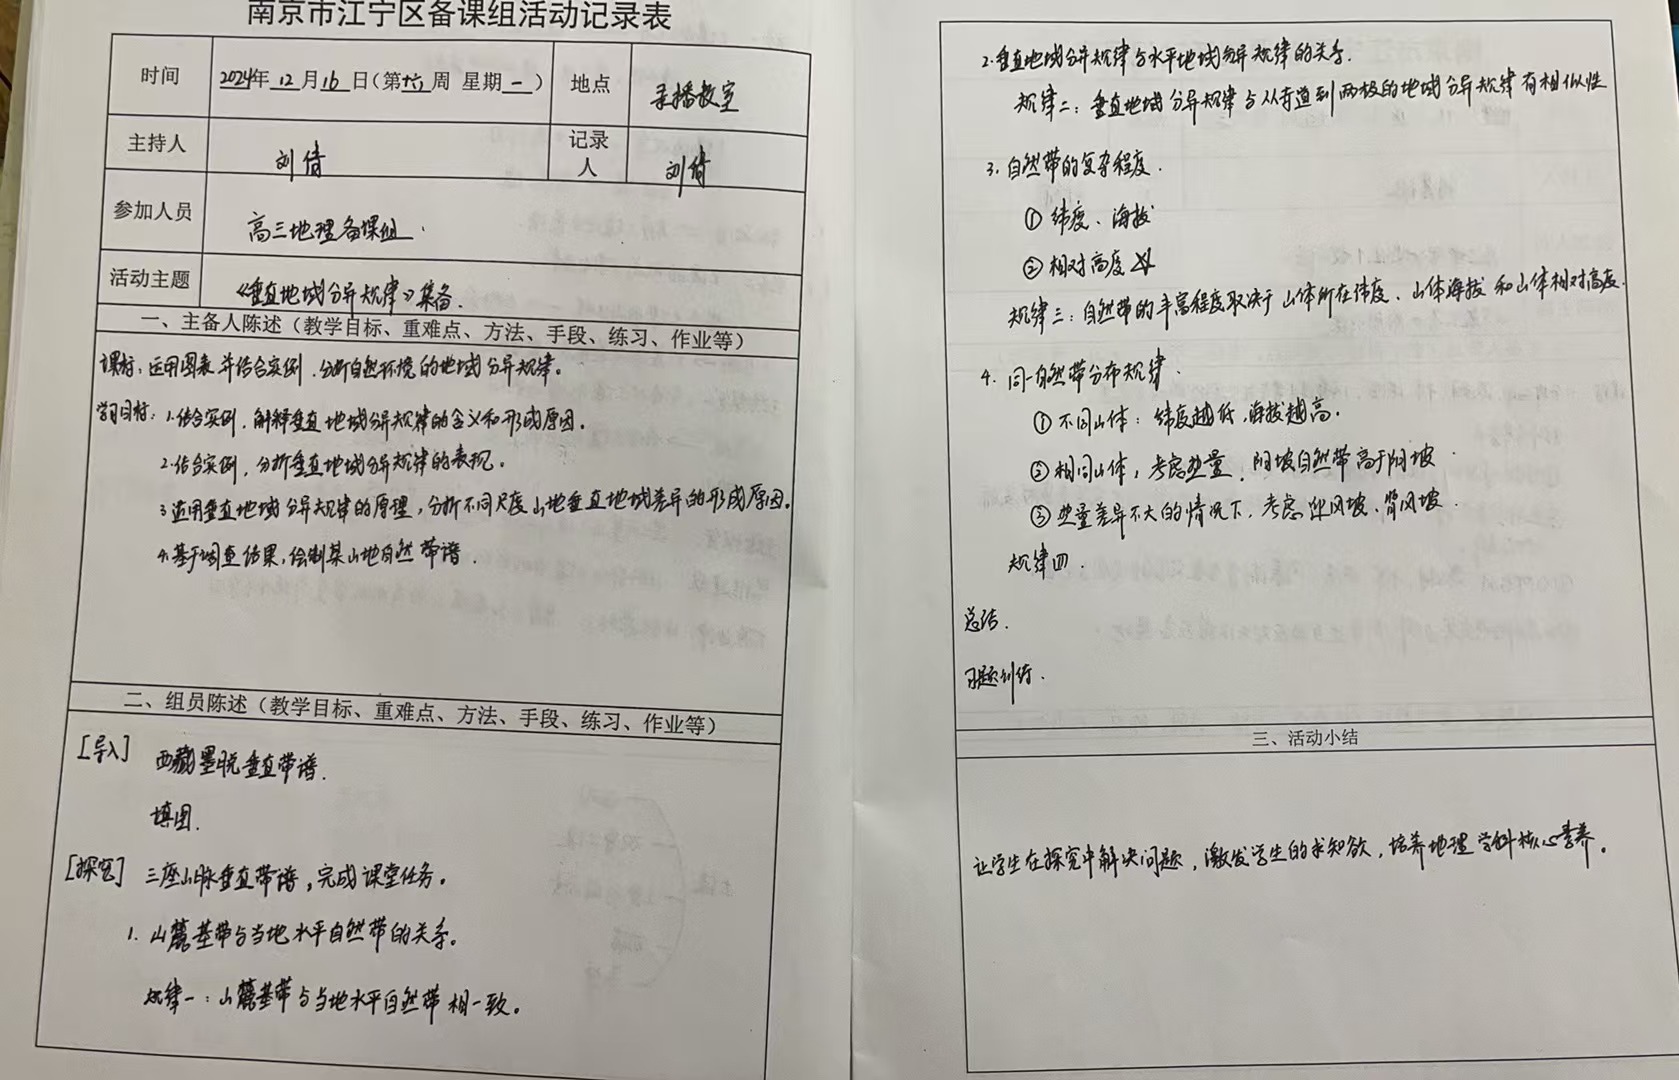 南京市江宁区备课组活动记录表
时间 2024年12月16日（第十六周 星期一） 地点 录播教室
主持人 刘倩 记录人 刘倩
参加人员 高三地理备课组.
活动主题 《垂直地域分异规律》集备.
一、主备人陈述（教学目标、重难点、方法、手段、练习、作业等）
课标：运用图表并结合实例，分析自然环境的地域分异规律。
学习目标：1.结合实例，解释垂直地域分异规律的含义和形成原因。
2.结合实例，分析垂直地域分异规律的表现。
3.运用垂直地域分异规律的原理，分析不同尺度山地垂直地域差异的形成原因。
4.基于调查结果，绘制某山地自然带谱.
二、组员陈述（教学目标、重难点、方法、手段、练习、作业等）
[导入] 西藏墨脱垂直带谱.
填图.
[探究] 三座山脉垂直带谱，完成课堂任务。
1. 山麓基带与当地水平自然带的关系。
规律一：山麓基带与当地水平自然带相一致。
2.垂直地域分异规律与水平地域分异规律的关系.
规律二：垂直地域分异规律与从赤道到两极的地域分异规律有相似性
3.自然带的复杂程度.
① 纬度、海拔
② 相对高度
规律三：自然带的丰富程度取决于山体所在纬度、山体海拔和山体相对高度.
4. 同一自然带分布规律.
① 不同山体：纬度越低，海拔越高.
② 相同山体，考虑热量，阳坡自然带高于阴坡.
③ 热量差异不大的情况下，考虑迎风坡、背风坡.
规律四.
总结.
习题训练.
三、活动小结
让学生在探究中解决问题，激发学生的求知欲，培养地理学科核心素养。